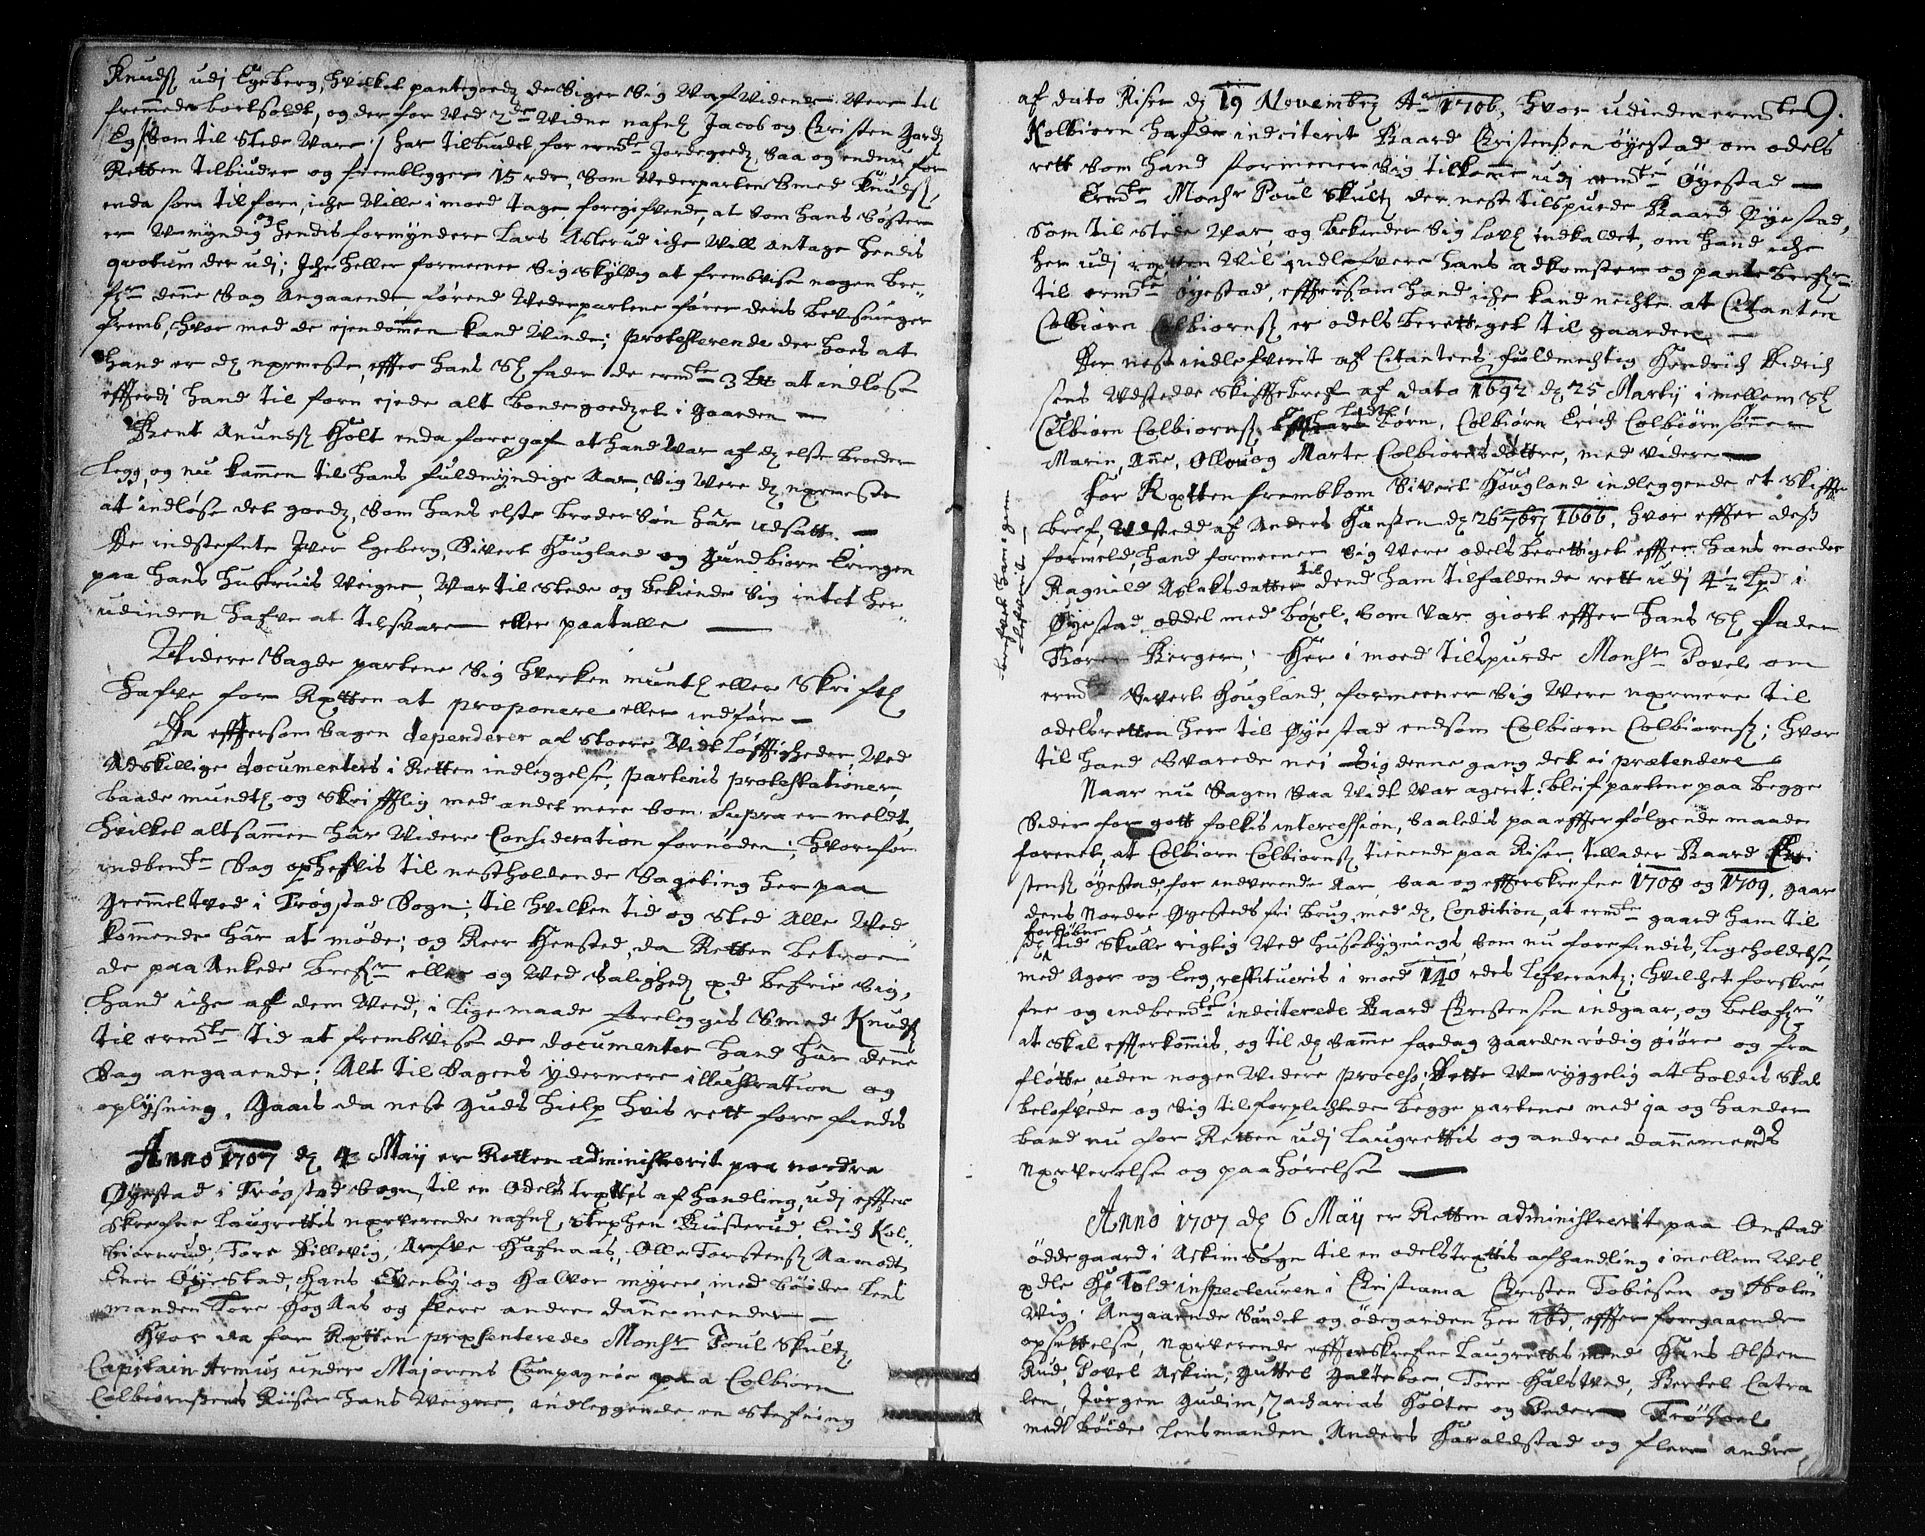 Knudsß udj Egeberg, hvilket pantegoedz de Siger Sig Uafvidende Vere til
fremmede bortsoldt, og der for ved 2de Vidne nafnl: Jacob og Christen
/: Som til Stede Vare :/ har tilbudet for ermte Jordegoedz, Saa og endnu for
Retten tilbiuder og frembligger 15 rdr, Som Vederparten Smed Knudsß
enda som tilforn, iche Ville imoed tage, foregifvende, at Som hans Søster
er Umyndig og hendis formyndere Lars Asterud iche Vill antage hendis
qvotum der udj; Iche heller formeener Sig Skyldig at frembvise nogen bre-
fr denne Sag Angaaende Førend Vederpartene fører deris bevisninger
fremb, hvor med de ejendommen kand Vinde; protesterende der hoes at
hand er dz nærmeste, effter hans Sl fader de ermte 3 at indløse
effterdj hand til forn ejede alt bondegoedzet i Gaarden —
Bent Anundsß Holt enda foregaf at hand Var af dz elste broeder
Legg, og nu kammen til hans fuldmyndige Aar, Sig Vere dz nærmeste
at indløse det goedz, Som hans elste broder Søn har udsatt. —
De indstefnte Iver Egeberg, Sivert Hougland og Gundbiørn Eringen
paa hans hustruis Veigne, Var til Stede og bekiende Sig intet her-
udinden hafve at tilsvare eller paatalle —
Videre Sagde partene Sig hverken muntl eller Skriftl
hafve for Retten at proponere eller indføre —
Da effterSom Sagen dependerer af Stoere VidtLøfftigheder, Ved
Adskillige documenters i Retten indleggelse, partenis protestationer,
baade mundtl og Skrifftlig med andet mere Som Supra er meldt,
hvilket altsammen har Videre Consideration fornøden; hvorfor
indbemte Sag ophefvis til nestholdende Sageting her paa
Gremmeltved i Trøgstad Sogn; til hvilken tid og Sted Alle Ved-
kommende har at møde; og Peer Hensted, da Retten betroe
de paa Ankede brefr eller og Ved Salighedz æd befrie Sig,
hand iche af dem Veed, i lige maade foreleggis Smed Knudsß
til ermte tid at frembvise de documenter hand har denne
Sag angaaende; Alt til Sagens ydermere illustration og
oplysning. Gaais da nest Guds hielp hvis rett forefindis
Anno 1707 dz 4 Maij er Retten administrerit paa nordre
Øyestad i Trøgstad Sogn, til en Odels trettis afhandling, udj effter
skrefne Laugrettis nærverende nafnl, Stephen Busterud, Erich Kol-
biørnrud, Tore Killevig, Arfve Hafnaas, Olle Torstensß Aamodt,
Ener Øyestad, Hans Evenby og Halvor myrer, med bøide Lens
manden Tore HøgAas og flere andre dannemender —
Hvor da for Retten præsenterede Monsr Poul Skultz
Capitain Armus under Majorens Compagnie paa Colbiørn
Colbiørnßens Riiser hans Veigne, indleggende en Stefning
9.
af dato Riser dz 19 Novembrz Ao 1706, hvor udinden ermte
Kolbiørn hafde indciterit Baard Christenßen øyestad om odels
rett Som hand formener Sig tilkome udj ermte Øyestad —
Ermte Monsr Poul Skultz der nest tilspurde Baard Øyestad,
Som til Stede Var, og bekinder Sig lovl indkaldet, om hand iche
her udj retten Vil indlefvere hans adkomster og pantebrefr
til ermte Øyestad, effterSom hand iche kand nechte at Citanten
Colbiørn Colbiørnsß er odels berettiget til gaarden —
Der nest indlefverit af Citantens fuldmechtig Hendrich Didrich
sens Udstedde Skifftebref af dato 1692 dz 25 Martij i mellem Sl
Colbiørn Colbiørnsß Børn, Colbiørn Erich Colbiørnsønner
Marin, Anne, Olloug Marte Colbiørnsdøttre, med Videre —
For Retten frembkom Sivert Hougland indleggende et Skiffte
bref, Udstedd af Anders Hanßen dz 26 7brz 1666, hvor effter deß
formeld, hand formeener Sig Vere odels berettiget effter hans moeder
Ragnild Aslaksdatter til dend ham tilfaldende rett udj 4½ Lpd i
Øyestad oddel med bøxel, Som Var giort effter hans Sl Fader
Thorer Berger; Her imoed tilspurde Monsr Povel om
ermte Sivert Hougland, formeener Sig Vere nærmere til
odelsretten her til Øyestad endsom Colbiørn Colbiørnsß; hvor
til hand Svarede nei Sig denne gang det ei prætendere
brefvet ham igien
lefverit —
Naar nu Sagen Saa Vidt Var agerit; bleif partene paa begge
Sider for gott folkis intercession, Saaledis paa effterfølgende maade
foreenet, at Colbiørn Colbiørnsß tienende paa Riser, tillader Baard Chri
stensß øyestad, for inderverende Aar, Saa og effterskrefne 1708 og 1709, gaar
dens Nordre Øyesteds fri brug, med dz Condition, at ermte gaard ham til
dz tid forløbne Skulle rigtig Ved husebygnings, Som nu forefindis, ligeholdelse,
med Ager og Eng, restitueris imoed 140 rdrs lefverantz; hvilchet forskre
fne og indbemte indciterede Baard Christensen indgaar, og belofver
at skal effterkommis, og til dz Samme faedag gaarden rødig giøre og fra
fløtte, uden nogen Videre process; Dette U-ryggelig at holdis skal
belofvede og Sig tilforplichtede begge partene med ja og hander
baand nu for Retten udj Laugrettis og andre dannemends
nærverelse og paahørelse —
Anno 1707 dz 6 Maij er Retten administrerit paa Onstad
øddegaard i Askim Sogn til en odelstrættis afhandling i mellem Vel
ædle Hr Toldinspecteuren i Christiania Christen Tobiesen og Holm
Vig; Angaaende Sandet og ødegarden her ibd, effter foregaaende
opsettelse, nærverende effterskrefne Laugrettis mend Hans Olßen
Rud, Povel Askim, Guttel Galteboe, Tore Halstved, Berkel Catra
len, Jørgen Gudim, Zacharias Holter og Peder Trøhoel
medt bøide Lensmanden Anders Haraldstad og flere andre